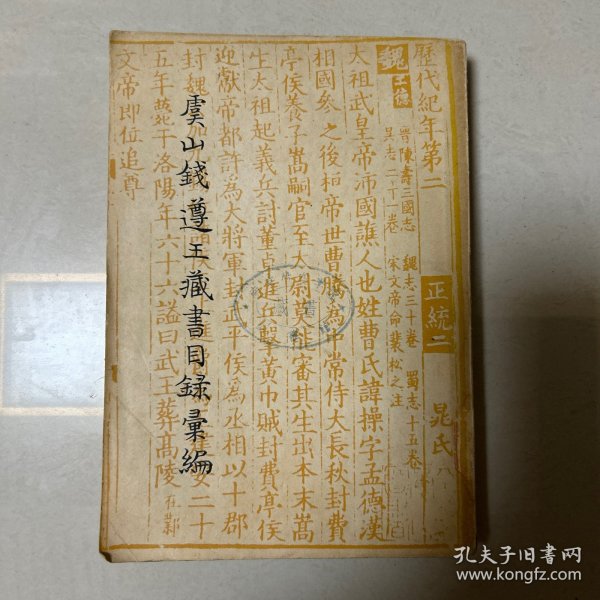 虞山錢遵王藏書目録彙編
歷代紀年第二
正統二
晁氏
魏土德
晉陳壽三國志 魏志三十卷 蜀志十五卷
吳志二十一卷 宋文帝命裴松之注
太祖武皇帝沛國譙人也姓曹氏諱操字孟德漢
相國參之後桓帝世曹騰為中常侍大長秋封費
亭侯養子嵩嗣官至太尉莫能審其生出本末嵩
生太祖起義兵討董卓進兵擊黃巾賊封費亭侯
迎獻帝都許為大將軍封武平侯為丞相以十郡
封魏 二十
五年薨于洛陽年六十六謚曰武王葬高陵在鄴
文帝即位追尊
孔夫子旧书网
www.kongfz.com